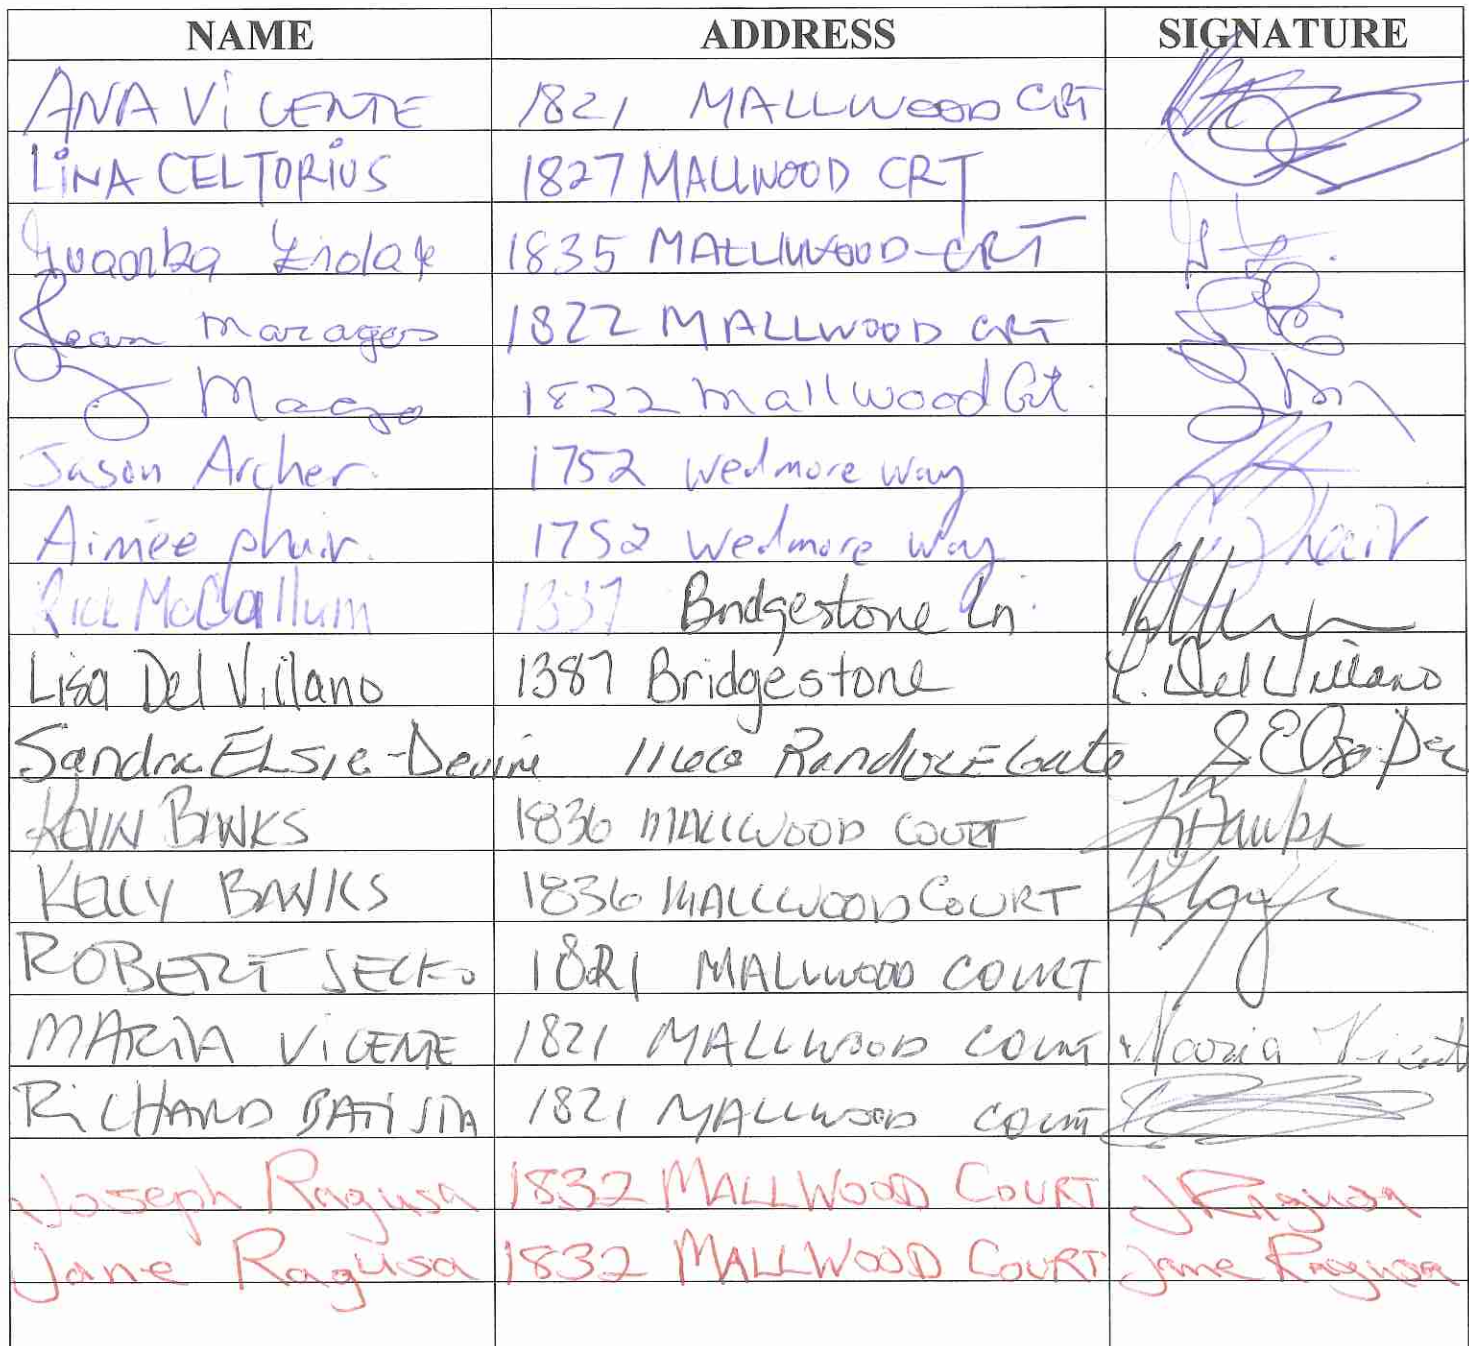 NAME ADDRESS SIGNATURE
ANA ViCENTE 1821 MALLWOOD CRT
LiNA CELTORIUS 1827 MALLWOOD CRT
1835 MALLWOOD CRT
Jean Maragos 1822 MALLWOOD CRT
1822 Mallwood Crt.
Jason Archer. 1752 Wedmore Way
Aimee phair. 1752 Wedmore Way Phair
Rick McCallum Bridgestone Ln
Lisa Del Villano 1387 Bridgestone L. Del Villano
Sandra Elsie-Devine Gate
KEVIN BANKS 1836 MALLWOOD COURT KBanks
KELLY BANKS 1836 MALLWOOD COURT
ROBERT 1821 MALLWOOD COURT
MARIA ViCENTE 1821 MALLWOOD COURT Maria Vicente
RiCHARD BATiSTA 1821 MALLWOOD COURT
Joseph Ragusa 1832 MALLWOOD COURT J Ragusa
Jane Ragusa 1832 MALLWOOD COURT Jane Ragusa